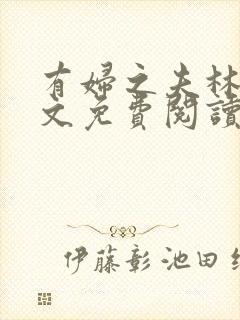 有婦之夫林
文免費閱讀
伊藤彰池田